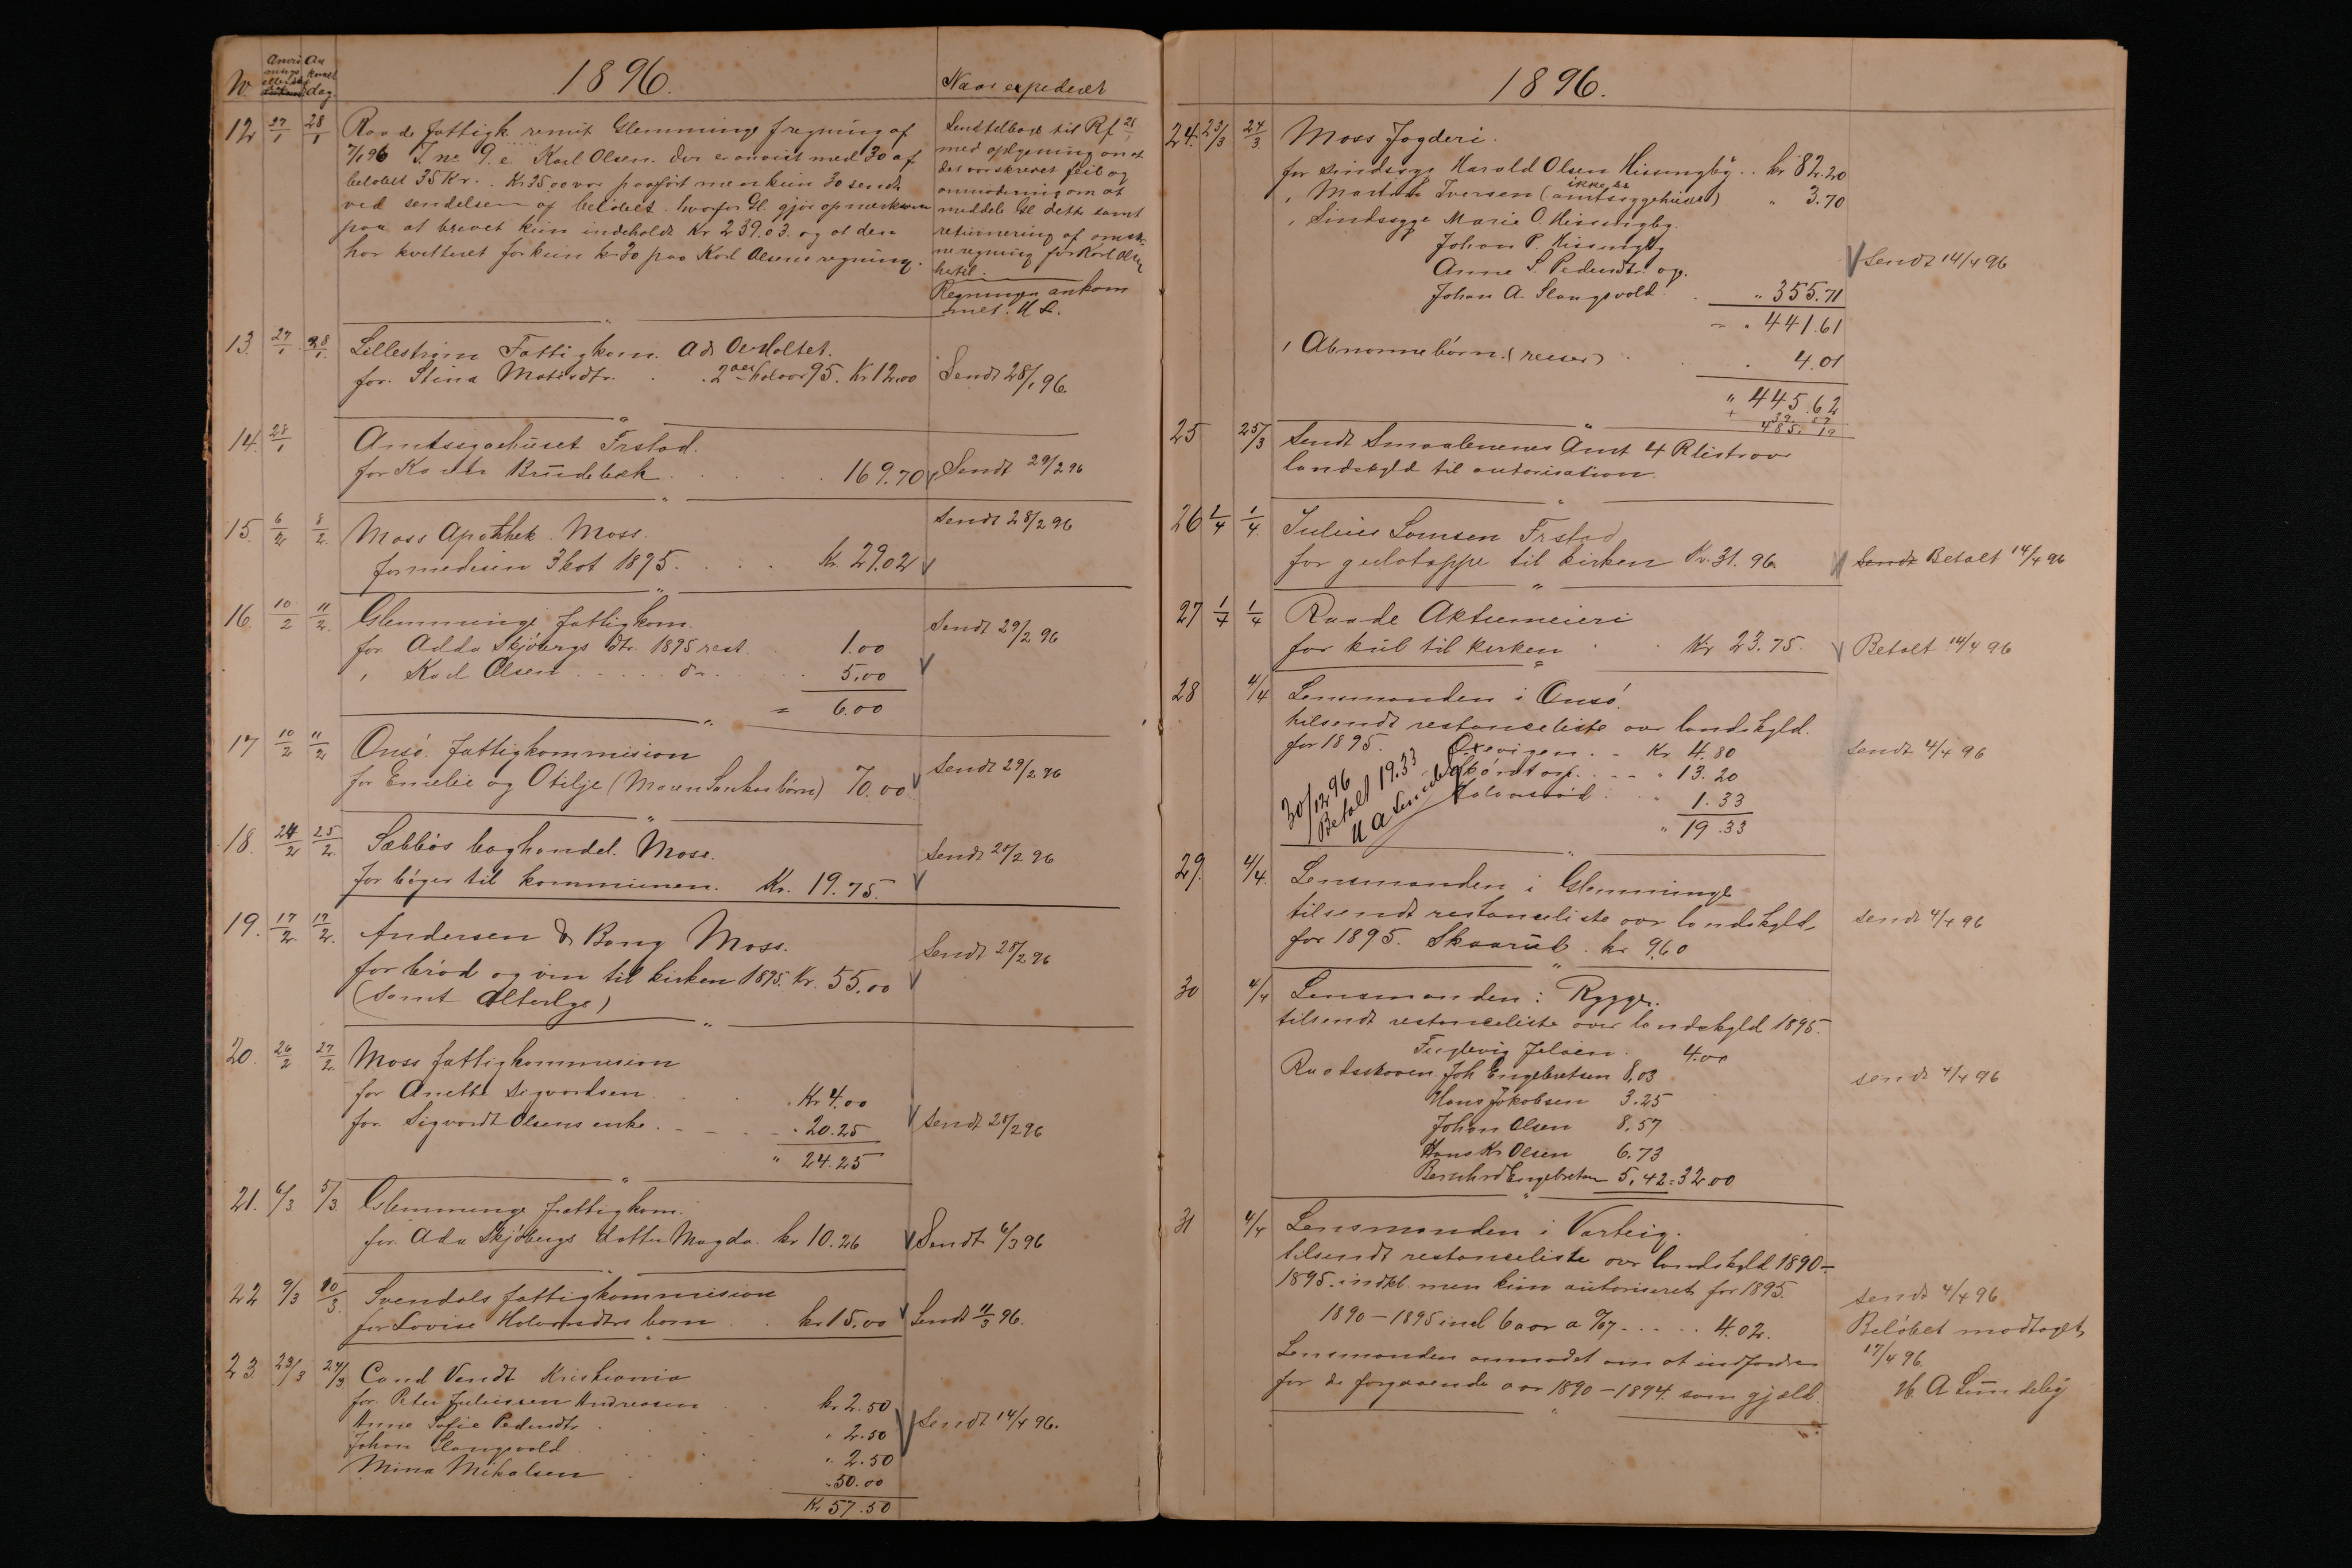 1896.
No.
An
komst
dag.
Naar expederet
12 27/1 28/1 Raade fattigk. remit Glemminge fregning af
7/1 96 J. no 9. e. Karl Olsen. der er anvist med 30 af
beløbet 35 Kr. Kr 35,00 var paaført men kun 30 sendt
ved sendelsen af beløbet. hvorfor Gl. gjør opmerksom
paa at brevet kun indeholdt Kr 239.03. og at den
har kvitteret for kun kr 30 paa Karl Olsens regning.
Sendt tilbage til Rf
med oplysning om at
det var skrevet feil og
anmodning om at
meddele Gl dette samt
returnering af
ne regning for Karl Olsen
hertil.
Regningen ankom
met. H L.
13. 27/1 28/1 Lillestrøm Fattigkom. Ad
for Stina Matisdtr. 2det halvaar 95. Kr 12.00
Sendt 28/1 96.
14. 28/1 Amtssygehuset Frstad.
for Karen Brudebæk 169.70
Sendt 29/2 96
15. 6/2 8/2 Moss Apothek Moss.
for medisin 3 kvt 1895. Kr. 29.02
Sendt 28/2 96
16. 10/2 11/2 Glemminge fattigkom.
for Adda Skjøbergs dtr. 1895 rest. 1.00
" Karl Olsen do 5.00
= 6.00
Sendt 29/2 96
17 10/2 11/2 Onsø fattigkommision
for Emelie og Otilje (Maren børn) 70.00
Sendt 29/2 96
18. 24/2 25/2 Sæbbøs boghandel. Moss.
for bøger til kommunen. Kr. 19.75.
Sendt 28/2 96
19. 17/2 17/2 Andersen & Bang Moss.
for brød og vin til kirken 1895. Kr. 55.00
(samt alterlys)
Sendt 28/2 96
20. 26/2 27/2 Moss fattigkommision
for Anette Sigvordsen Kr 4.00
for Sigvordt Olsens enke 20.25
" 24.25
Sendt 28/2 96
21. 6/3 5/3 Glemminge fattigkom.
for Ada Skjøbergs datter Magda. kr 10.26
Sendt 6/3 96
22 9/3 10/3. Svendals fattigkommision
for Lovise Halvorsdtrs barn kr 15.00
Sendt 11/3 96.
23. 23/3 24/3 Cand Vendt Kristiania
for Peter Juliussen Andreasen kr 2.50
Anne Sofie Pedersdtr. " 2.50
Johan Slangsvold " 2.50
Mina Mikalsen 50.00
Kr 57.50
Sendt 14/4 96.
1896.
24. 23/3 24/3 Moss Fogderi.
for sindssyg Harald Olsen Missingby kr 82.20
" Martin Iversen (amtssygehuset) " 3.70
ikke
" Sindssyge Marie O. Missingby
Johan P. Missingby
Anne S. Pedersdtr. og
Johan A. Slangsvold " 355.71
" 441.61
" Abnorme børn (reiser) 4.01
" 445.62
+ 39.57
485.19
Sendt 14/4 96
25 25/3 Sendt Smaalenenes Amt 4 Rlister over
landskyld til autorisation.
26 1/4 1/4. Julius Samsen Frstad
for gulvtæppe til kirken Kr. 31.96
Sendt Betalt 14/4 96
27 1/4 1/4 Raade Aktiemeieri
for kul til kirken Kr 23.75.
Betalt 14/4 96
28 4/4 Lensmanden i Onsø
tilsendt restanseliste over landskyld.
for 1895. Kr 4.80
" 13.20
" 1.33
" 19.33
30/12 96
Betalt 19.33
H A Lundeby
sendt 4/4 96
29. 4/4. Lensmanden i Glemminge
tilsendt restanseliste over landskyld
for 1895. Skaarub. kr 9,60
sendt 4/4 96
30 4/4 Lensmanden i Rygge.
tilsendt restanseliste over landskyld 1895.
Fuglevig Jeløen 4.00
Raadsskoven Joh Engebretsen 8,03
Hans Jakobsen 3.25
Johan Olsen 8,57
Hans Kr Olsen 6.73
Bernhrd Engebretsen 5,42 = 32.00
sendt 4/4 96
31 4/4 Lensmanden i Varteig.
tilsendt restanseliste over landskyld 1890-
1895. indkl. men kun autoriseret for 1895.
1890-1895 incl 6 aar a 0/67 4.02.
Lensmanden anmodet om at indfordre
for de forgaaende aar 1890-1894. som gjæld.
sendt 4/4 96
Beløbet modtaget
17/4 96.
H. A Lundeby